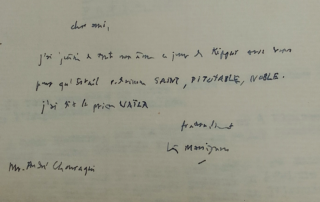 cher ami,
j'ai jeûné de tout mon âme ce jour de Kippur avec vous
pour qu'Israël redevienne SAINT, PITOYABLE, NOBLE.
j'ai dit la prière
fraternellement
L. Massignon
Mr. André Chouraqui